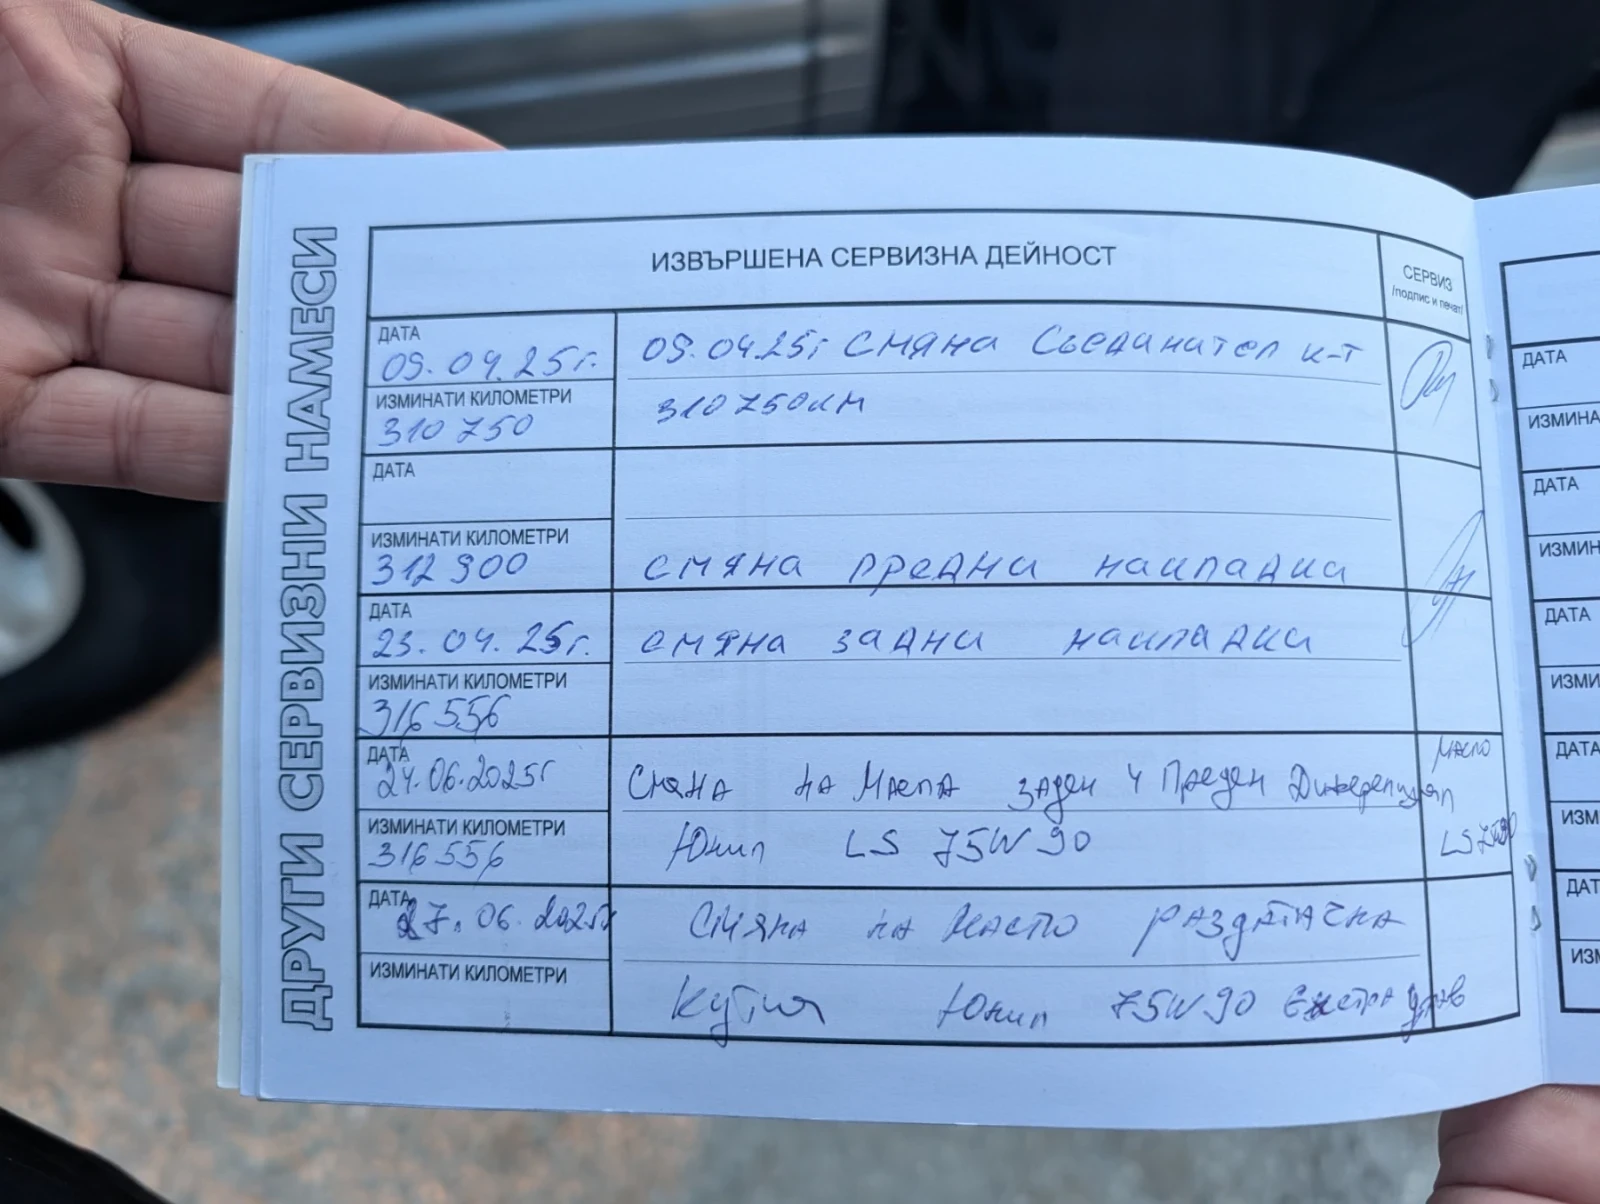 ДРУГИ СЕРВИЗНИ НАМЕСИ
ИЗВЪРШЕНА СЕРВИЗНА ДЕЙНОСТ
СЕРВИЗ
/подпис и печат/
ДАТА
09.04.25г.
09.04.25г СМЯНА Съединател к-т
ИЗМИНАТИ КИЛОМЕТРИ
310 750
310750км
ДАТА
ИЗМИНАТИ КИЛОМЕТРИ
312 900
смяна предни накладки
ДАТА
23.04.25г.
смяна задни накладки
ИЗМИНАТИ КИЛОМЕТРИ
316 556
ДАТА
24.06.2025г
Смяна на Масла заден и Преден Диференциал
Масло
ИЗМИНАТИ КИЛОМЕТРИ
316 556
Юнил LS 75W90
LS 75W90
ДАТА
27.06.2025г
Смяна на Масло раздатачна
ИЗМИНАТИ КИЛОМЕТРИ
Кутия Юнил 75W90 Екстра
ДАТА
ИЗМИНА
ДАТА
ИЗМИН
ДАТА
ИЗМИ
ДАТА
ИЗМ
ДАТ
ИЗМ